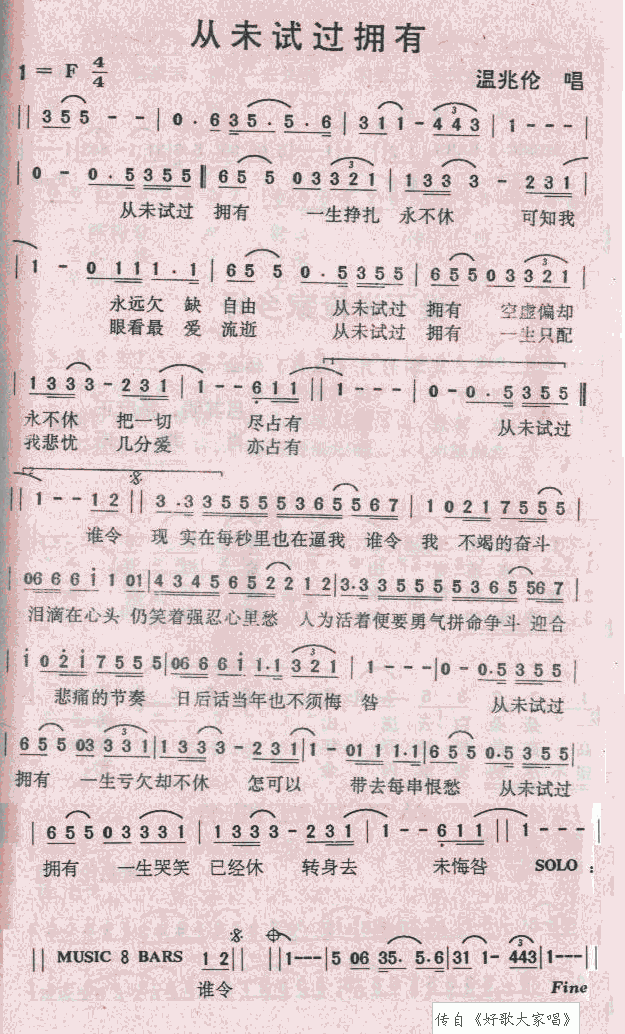 从未试过拥有
1 = F 4/4
温兆伦 唱
|| 3 5 5 - - | 0 · 6 3 5 · 5 · 6 | 3 1 1 - 4 4 3 | 1 - - - |
| 0 - 0 · 5 3 5 5 || 6 5 5 0 3 3 2 1 | 1 3 3 3 - 2 3 1 |
从未试过 拥有 一生挣扎 永不休 可知我
| 1 - 0 1 1 1 · 1 | 6 5 5 0 · 5 3 5 5 | 6 5 5 0 3 3 2 1 |
永远欠 缺 自由 从未试过 拥有 空虚偏却
眼看最 爱 流逝 从未试过 拥有 一生只配
| 1 3 3 3 - 2 3 1 | 1 - - 6 1 1 || 1 - - - | 0 - 0 · 5 3 5 5 ||
永不休 把一切 尽占有 从未试过
我悲忧 几分爱 亦占有
2
|| 1 - - 1 2 || 3 · 3 3 5 5 5 5 5 3 6 5 5 5 6 7 | 1 0 2 1 7 5 5 5 |
谁令 现 实在每秒里也在逼我 谁令 我 不竭的奋斗
| 06 6 6 1 1 01 | 4 3 4 5 6 5 2 2 1 2 | 3 · 3 3 5 5 5 5 5 3 6 5 56 7 |
泪滴在心头 仍笑着强忍心里愁 人为活着便要勇气拼命争斗 迎合
| 1 0 2 1 7 5 5 5 | 06 6 6 1 1 · 1 3 2 1 | 1 - - - | 0 - 0 · 5 3 5 5 |
悲痛的节奏 日后话当年也不须悔 咎 从未试过
| 6 5 5 03 3 3 1 | 1 3 3 3 - 2 3 1 | 1 - 01 1 1 · 1 | 6 5 5 0 · 5 3 5 5 |
拥有 一生亏欠却不休 怎可以 带去每串恨愁 从未试过
| 6 5 5 0 3 3 3 1 | 1 3 3 3 - 2 3 1 | 1 - - 6 1 1 || 1 - - - |
拥有 一生哭笑 已经休 转身去 未悔咎 SOLO :
|| MUSIC 8 BARS 1 2 || || 1 - - - | 5 06 35 · 5 · 6 | 31 1 - 443 | 1 - - - ||
谁令 Fine
传自《好歌大家唱》